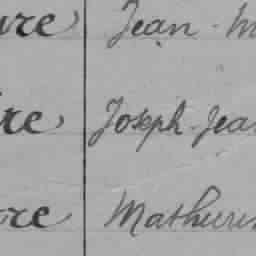 ure Jean - M
re Joseph-Jea
re Mathuri